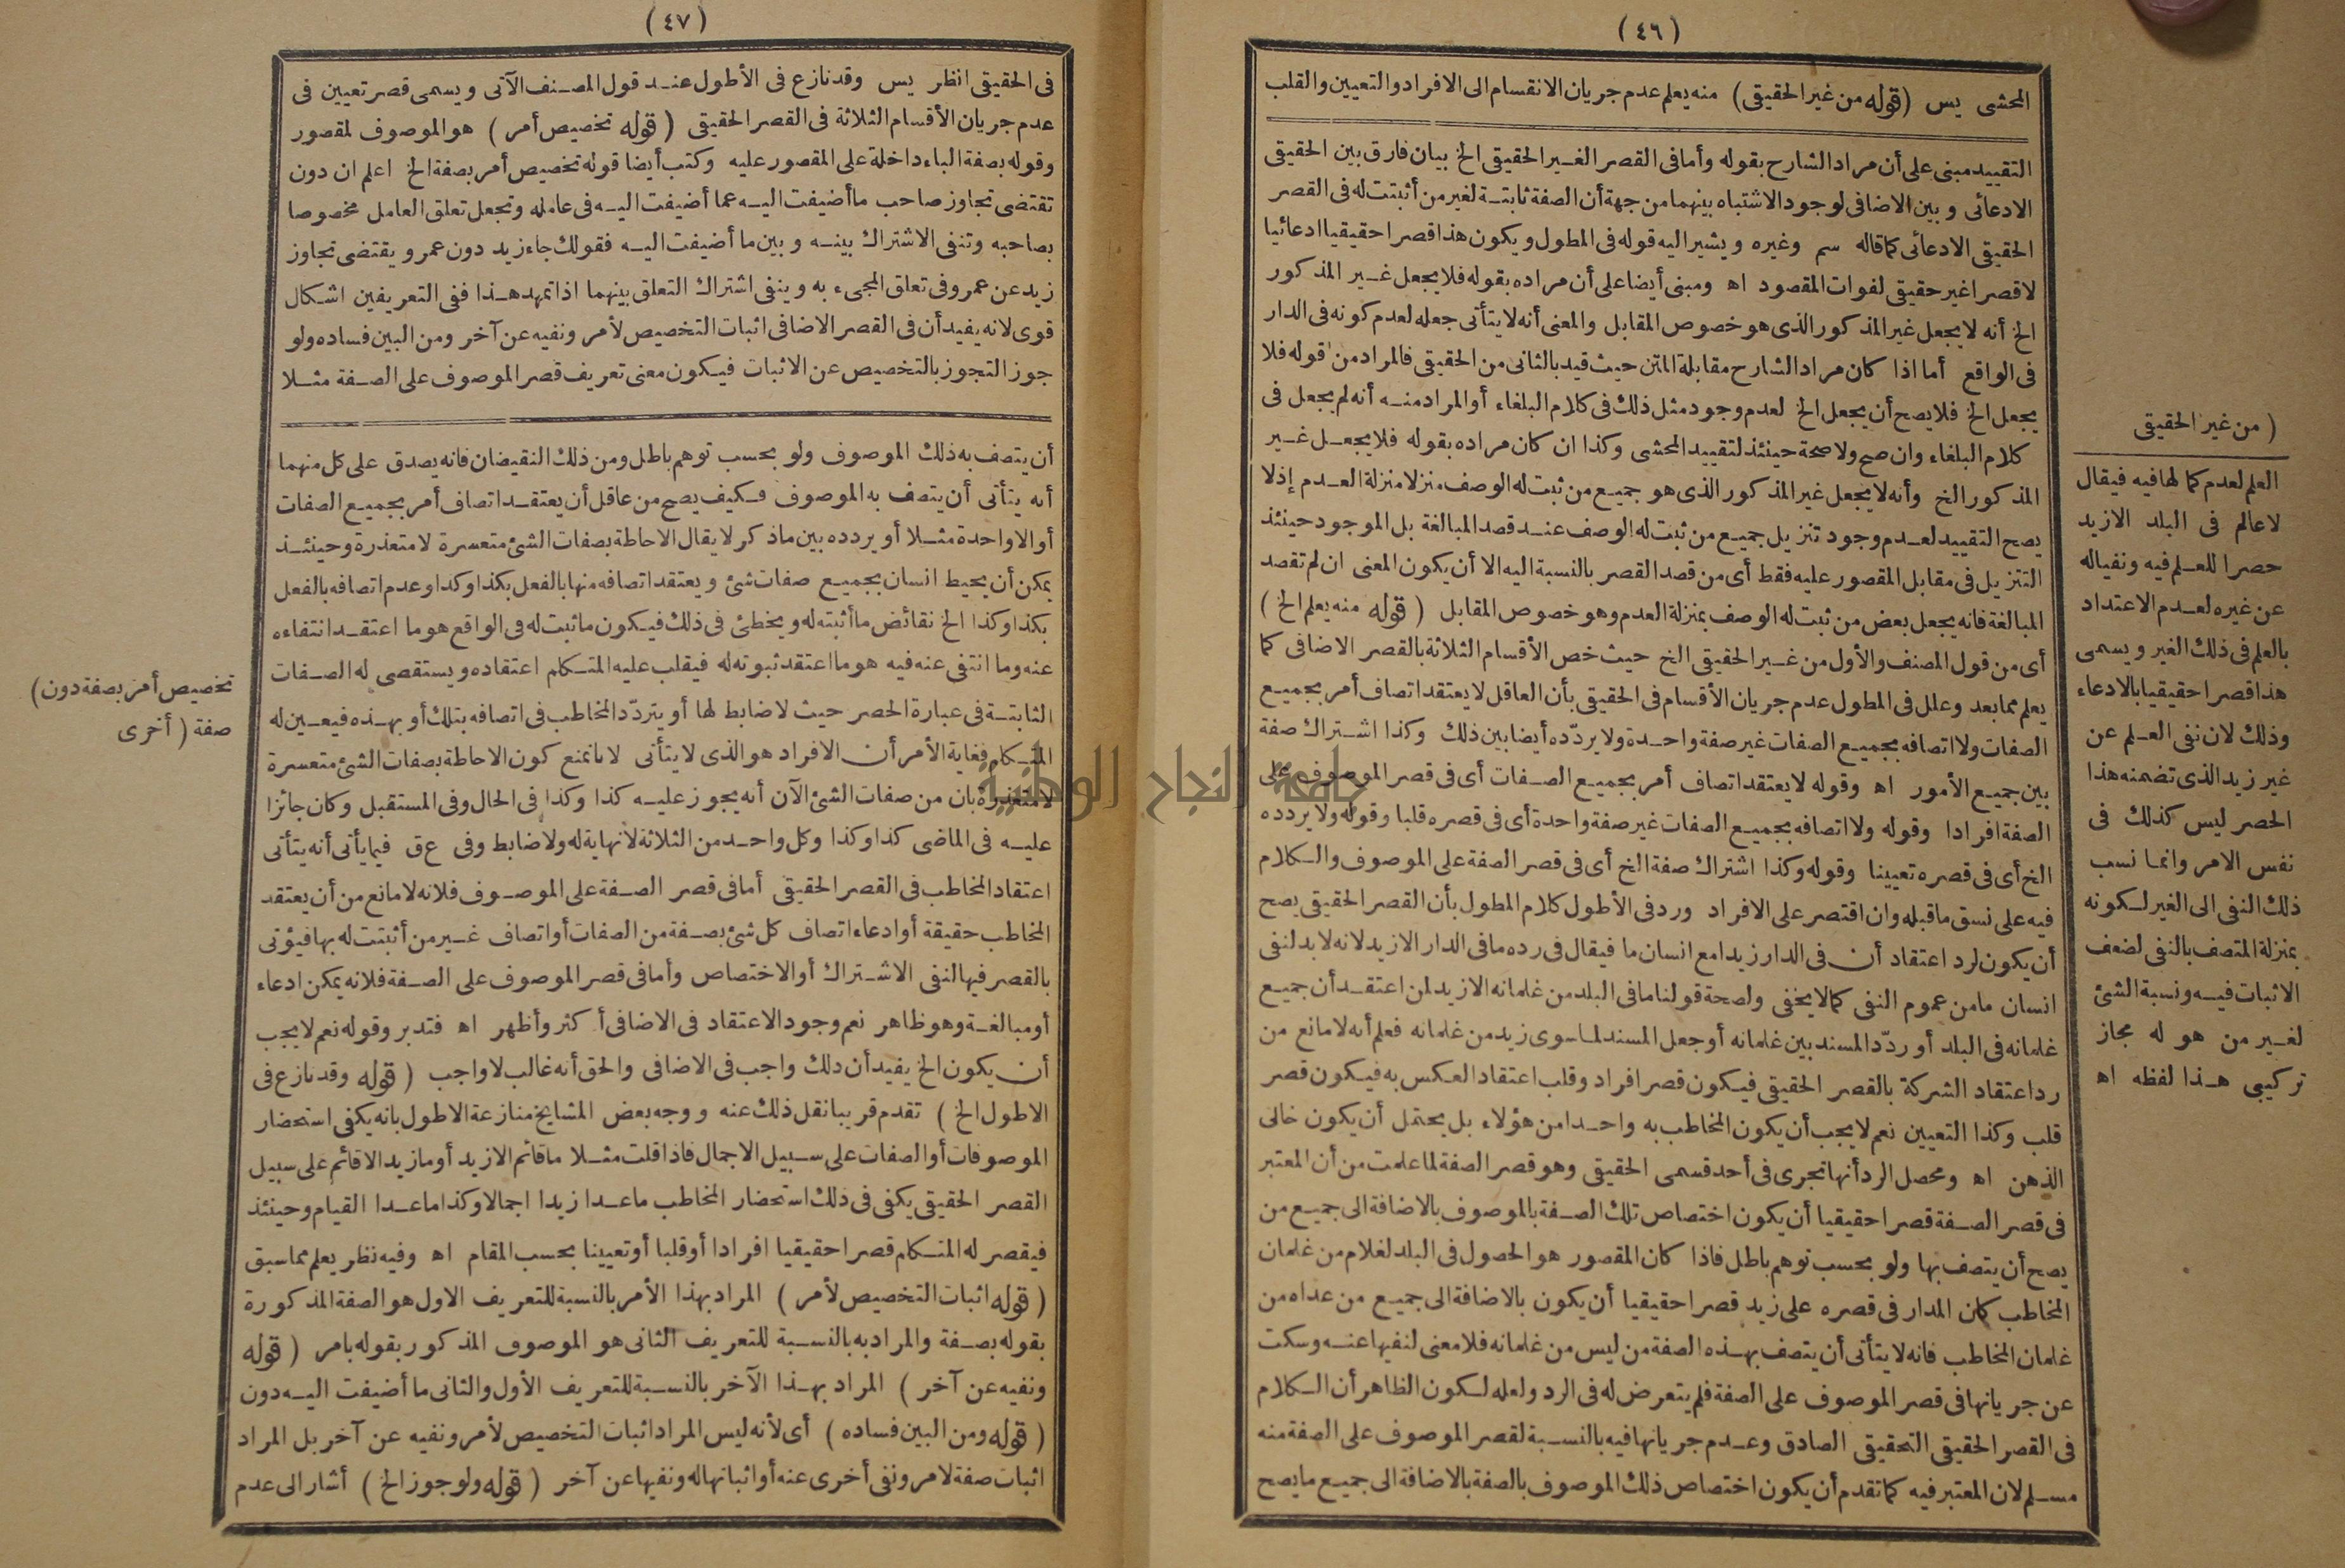 (٤٦)
المحشى يس (قوله من غير الحقيقى) منه يعلم عدم جريان الانقسام الى الافراد والتعيين والقلب
التقييد مبنى على أن مراد الشارح بقوله وأما فى القصر الغير الحقيقى الخ بيان فارق بين الحقيقى
الادعائى وبين الاضافى لوجود الاشتباه بينهما من جهة أن الصفة ثابتة لغير من أثبتت له فى القصر
الحقيقى الادعائى كما قاله سم وغيره ويشير اليه قوله فى المطول ويكون هذا قصرا حقيقيا ادعائيا
لا قصرا غير حقيقى لفوات المقصود اه ومبنى أيضا على أن مراده بقوله فلا يجعل غير المذكور
الخ أنه لا يجعل غير المذكور الذى هو خصوص المقابل والمعنى أنه لا يتأتى جعله لعدم كونه فى الدار
فى الواقع أما اذا كان مراد الشارح مقابلة المتن حيث قيد بالثانى من الحقيقى فالمراد من قوله فلا
يجعل الخ فلا يصح أن يجعل الخ لعدم وجود مثل ذلك فى كلام البلغاء أو المراد منه أنه لم يجعل فى
كلام البلغاء وان صح ولا صحة حينئذ لتقييد المحشى وكذا ان كان مراده بقوله فلا يجعل غير
المذكور الخ وأنه لا يجعل غير المذكور الذى هو جميع من ثبت له الوصف منزلا منزلة العدم إذ لا
يصح التقييد لعدم وجود تنزيل جميع من ثبت له الوصف عند قصد المبالغة بل الموجود حينئذ
التنزيل فى مقابل المقصور عليه فقط أى من قصد القصر بالنسبة اليه الا أن يكون المعنى ان لم تقصد
المبالغة فانه يجعل بعض من ثبت له الوصف بمنزلة العدم وهو خصوص المقابل (قوله منه يعلم الخ)
أى من قول المصنف والأول من غير الحقيقى الخ حيث خص الأقسام الثلاثة بالقصر الاضافى كما
يعلم مما بعد وعلل فى المطول عدم جريان الأقسام فى الحقيقى بأن العاقل لا يعتقد اتصاف أمر بجميع
الصفات ولا اتصافه بجميع الصفات غير صفة واحدة ولا يردّده أيضا بين ذلك وكذا اشتراك صفة
بين جميع الأمور اه وقوله لا يعتقد اتصاف أمر بجميع الصفات أى فى قصر الموصوف على
الصفة افرادا وقوله ولا اتصافه بجميع الصفات غير صفة واحدة أى فى قصره قلبا وقوله ولا يردده
الخ أى فى قصره تعيينا وقوله وكذا اشتراك صفة الخ أى فى قصر الصفة على الموصوف والكلام
فيه على نسق ما قبله وان اقتصر على الافراد ورد فى الأطول كلام المطول بأن القصر الحقيقى يصح
أن يكون لرد اعتقاد أن فى الدار زيدا مع انسان ما فيقال فى رده ما فى الدار الا زيد لانه لا بد لنفى
انسان ما من عموم النفى كما لا يخفى ولصحة قولنا ما فى البلد من غلمانه الا زيد لمن اعتقد أن جميع
غلمانه فى البلد أو ردّد المسند بين غلمانه أو جعل المسند لما سوى زيد من غلمانه فعلم أنه لا مانع من
رد اعتقاد الشركة بالقصر الحقيقى فيكون قصر افراد وقلب اعتقاد العكس به فيكون قصر
قلب وكذا التعيين نعم لا يجب أن يكون المخاطب به واحدا من هؤلاء بل يحتمل أن يكون خالى
الذهن اه ومحصل الرد أنها تجرى فى أحد قسمى الحقيقى وهو قصر الصفة لما علمت من أن المعتبر
فى قصر الصفة قصرا حقيقيا أن يكون اختصاص تلك الصفة بالموصوف بالاضافة الى جميع من
يصح أن يتصف بها ولو بحسب توهم باطل فاذا كان المقصور هو الحصول فى البلد لغلام من غلمان
المخاطب كان المدار فى قصره على زيد قصرا حقيقيا أن يكون بالاضافة الى جميع من عداه من
غلمان المخاطب فانه لا يتأتى أن يتصف بهذه الصفة من ليس من غلمانه فلا معنى لنفيها عنه وسكت
عن جريانها فى قصر الموصوف على الصفة فلم يتعرض له فى الرد ولعله لكون الظاهر أن الكلام
فى القصر الحقيقى التحقيقى الصادق وعدم جريانها فيه بالنسبة لقصر الموصوف على الصفة منه
مسلم لان المعتبر فيه كما تقدم أن يكون اختصاص ذلك الموصوف بالصفة بالاضافة الى جميع ما يصح
(من غير الحقيقى
العلم لعدم كمالها فيه فيقال
لا عالم فى البلد الا زيد
حصرا للعلم فيه ونفيا له
عن غيره لعدم الاعتداد
بالعلم فى ذلك الغير ويسمى
هذا قصرا حقيقيا بالادعاء
وذلك لان نفى العلم عن
غير زيد الذى تضمنه هذا
الحصر ليس كذلك فى
نفس الامر وانما نسب
ذلك النفى الى الغير لكونه
بمنزلة المتصف بالنفى لضعف
الاثبات فيه ونسبة الشئ
لغير من هو له مجاز
تركيبى هذا لفظه اه
(٤٧)
فى الحقيقى انظر يس وقد نازع فى الأطول عند قول المصنف الآتى ويسمى قصر تعيين فى
عدم جريان الأقسام الثلاثة فى القصر الحقيقى (قوله تخصيص أمر) هو الموصوف لمقصور
وقوله بصفة الباء داخلة على المقصور عليه وكتب أيضا قوله تخصيص أمر بصفة الخ اعلم ان دون
تقتضى تجاوز صاحب ما أضيفت اليه عما أضيفت اليه فى عامله وتجعل تعلق العامل مخصوصا
بصاحبه وتنفى الاشتراك بينه وبين ما أضيفت اليه فقولك جاء زيد دون عمرو يقتضى تجاوز
زيد عن عمرو فى تعلق المجىء به وينفى اشتراك التعلق بينهما اذا تمهد هذا ففى التعريفين اشكال
قوى لانه يفيد أن فى القصر الاضافى اثبات التخصيص لأمر ونفيه عن آخر ومن البين فساده ولو
جوز التجوز بالتخصيص عن الاثبات فيكون معنى تعريف قصر الموصوف على الصفة مثلا
أن يتصف به ذلك الموصوف ولو بحسب توهم باطل ومن ذلك النقيضان فانه يصدق على كل منهما
أنه يتأتى أن يتصف به الموصوف فكيف يصح من عاقل أن يعتقد اتصاف أمر بجميع الصفات
أو الا واحدة مثلا أو يردده بين ما ذكر لا يقال الاحاطة بصفات الشئ متعسرة لا متعذرة وحينئذ
يمكن أن يحيط انسان بجميع صفات شئ ويعتقد اتصافه منها بالفعل بكذا وكذا وعدم اتصافه بالفعل
بكذا وكذا الخ نقائض ما أثبته له ويخطئ فى ذلك فيكون ما ثبت له فى الواقع هو ما اعتقد انتفاءه
عنه وما انتفى عنه فيه هو ما اعتقد ثبوته له فيقلب عليه المتكلم اعتقاده ويستقصى له الصفات
الثابتة فى عبارة الحصر حيث لا ضابط لها أو يتردّد المخاطب فى اتصافه بتلك أو بهذه فيعين له
المتكلم فغاية الأمر أن الافراد هو الذى لا يتأتى لانا نمنع كون الاحاطة بصفات الشئ متعسرة
لا متعذرة بان من صفات الشئ الآن أنه يجوز عليه كذا وكذا فى الحال وفى المستقبل وكان جائزا
عليه فى الماضى كذا وكذا وكل واحد من الثلاثة لا نهاية له ولا ضابط وفى ع ق فيما يأتى أنه يتأتى
اعتقاد المخاطب فى القصر الحقيقى أما فى قصر الصفة على الموصوف فلانه لا مانع من أن يعتقد
المخاطب حقيقة أو ادعاء اتصاف كل شئ بصفة من الصفات أو اتصاف غير من أثبتت له بها فيؤتى
بالقصر فيها لنفى الاشتراك أو الاختصاص وأما فى قصر الموصوف على الصفة فلانه يمكن ادعاء
أو مبالغة وهو ظاهر نعم وجود الاعتقاد فى الاضافى أكثر وأظهر اه فتدبر وقوله نعم لا يجب
أن يكون الخ يفيد أن ذلك واجب فى الاضافى والحق أنه غالب لا واجب (قوله وقد نازع فى
الاطول الخ) تقدم قريبا نقل ذلك عنه ووجه بعض المشايخ منازعة الاطول بانه يكفى استحضار
الموصوفات أو الصفات على سبيل الاجمال فاذا قلت مثلا ما قائم الا زيد أو ما زيد الا قائم على سبيل
القصر الحقيقى يكفى فى ذلك استحضار المخاطب ما عدا زيدا اجمالا وكذا ما عدا القيام وحينئذ
فيقصر له المتكلم قصرا حقيقيا افرادا أو قلبا أو تعيينا بحسب المقام اه وفيه نظر يعلم مما سبق
(قوله اثبات التخصيص لأمر) المراد بهذا الأمر بالنسبة للتعريف الاول هو الصفة المذكورة
بقوله بصفة والمراد به بالنسبة للتعريف الثانى هو الموصوف المذكور بقوله بامر (قوله
ونفيه عن آخر) المراد بهذا الآخر بالنسبة للتعريف الأول والثانى ما أضيفت اليه دون
(قوله ومن البين فساده) أى لأنه ليس المراد اثبات التخصيص لأمر ونفيه عن آخر بل المراد
اثبات صفة لامر ونفى أخرى عنه أو اثباتها له ونفيها عن آخر (قوله ولو جوز الخ) أشار الى عدم
تخصيص أمر بصفة دون)
صفة (أخرى
جامعة النجاح الوطنية